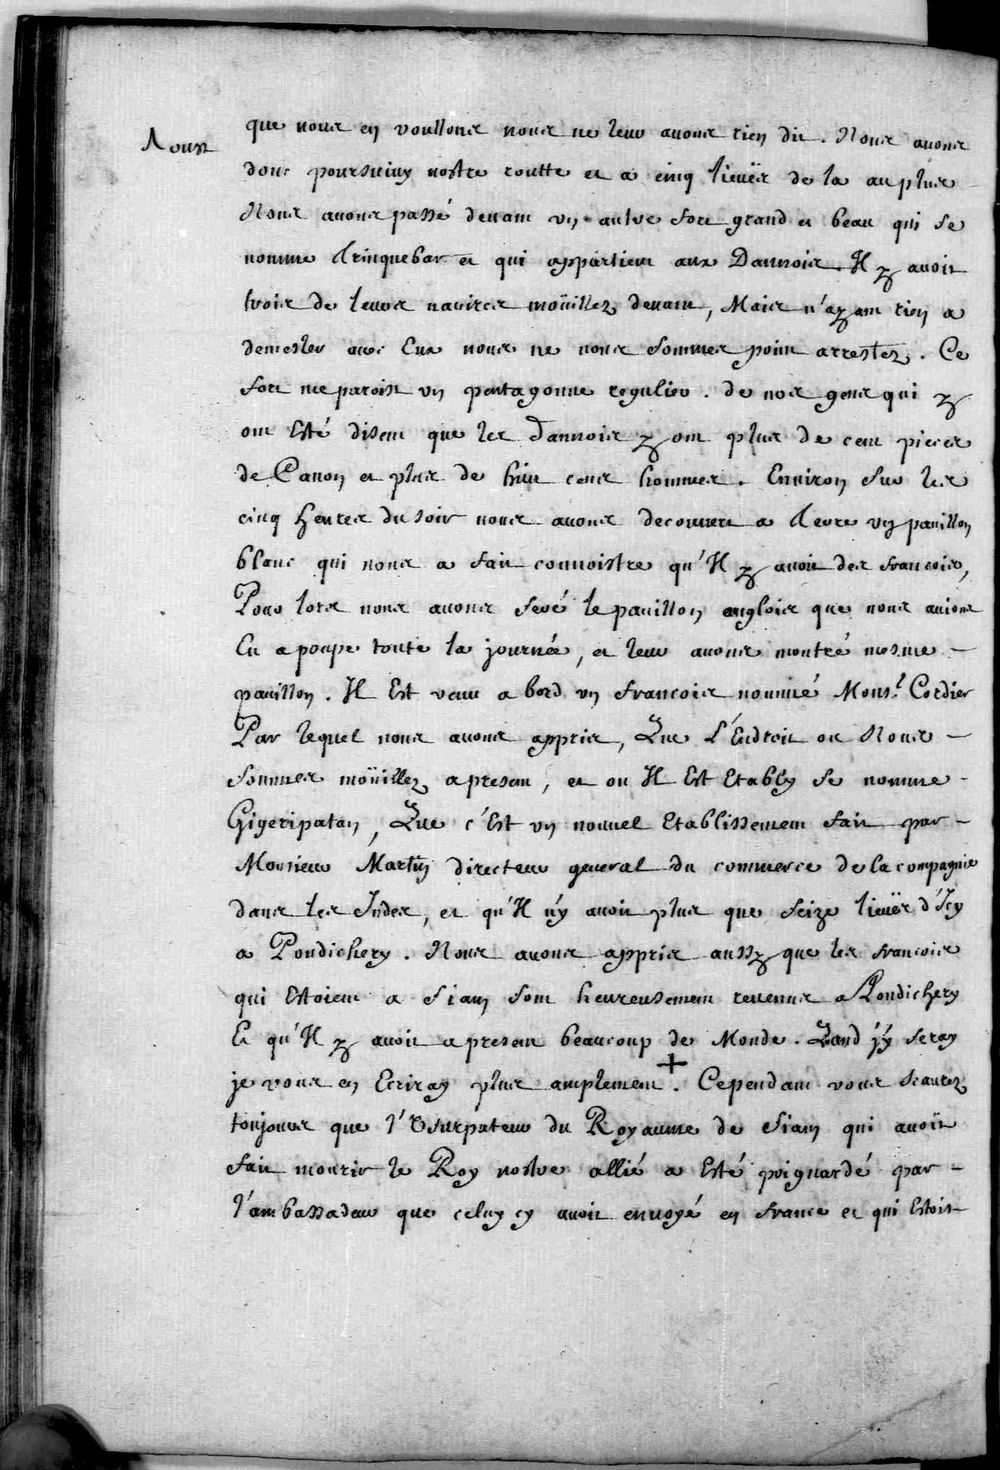 Aoust
que nous en voullons nous ne leur avons rien dit. Nous avons
donc poursuivy nostre routte et a cinq lieuës de la au plus
Nous avons passé devant un autre fort grand et beau qui se
nomme Trinquebar et qui appartient aux Dannois. Il y avoit
trois de leurs navires moüillez devant, Mais n'ayant rien a
demesler avec Eux nous ne nous sommes point arrestez. Ce
fort me paroist un pentagonne regulier. de nos gens qui y
ont Esté disent que les Dannois y ont plus de cent pieces
de Canon et plus de huit cens hommes. Environ sur les
cinq heures du soir nous avons decouvert a terre un pavillon
blanc qui nous a fait connoistre qu'Il y avoit des francois,
Pour lors nous avons seré le pavillon anglois que nous avions
Eu a poupe toute la journée, et leur avons montré nostre
pavillon. Il Est venu a bord un francois nommé Monsr. Cordier
Par lequel nous avons appris, Que L'Endroit ou Nous
sommes moüillez a present, et ou Il Est Etably se nomme
Gigeripatan, Que c'Est un nouvel Etablissement fait par
Monsieur Martin directeur general du commerce de la compagnie
dans les Indes, et qu'Il n'y avoit plus que seize lieuës d'Icy
a Pondichery. Nous avons appris aussy que les francois
qui Estoient a Siam sont heureusement revenus a Pondichery
Et qu'Il y avoit a present beaucoup de Monde. Quand j'y seray
je vous en Ecriray plus amplement +. Cependant vous scaurez
toujours que l'Vsurpateur du Royaume de Siam qui avoit
fait mourir le Roy nostre allié a Esté poignardé par
l'ambassadeur que celuy cy avoit envoyé en france et qui Estoit